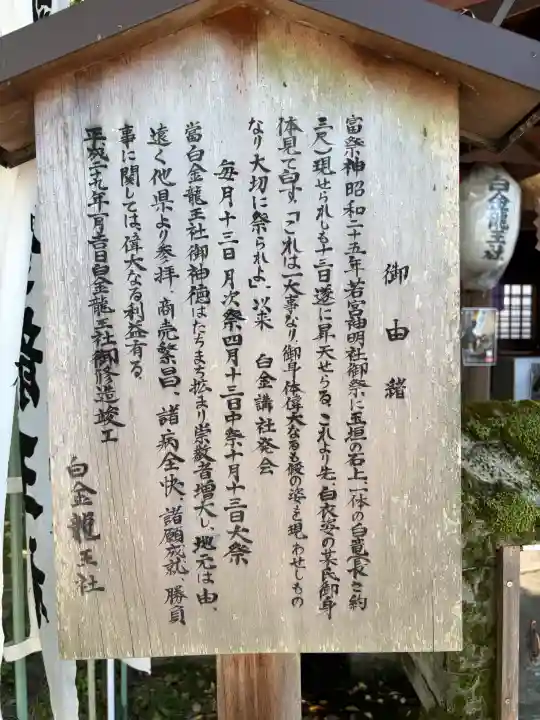 御由緒
富祭神昭和二十五年若宮神明社御祭に玉垣の石上、一体の白蛇(長さ約
三尺)現せられしも十三日遂に昇天せらる、これより先、白衣姿の某氏御身
体見て白す、「これは一大事なり、御身体偉大なるも仮の姿を現わせしもの
なり大切に祭られよ」、以来 白金講社発会
毎月十三日月次祭四月十三日中祭十月十三日大祭
當白金龍王社御神徳はたちまち拡まり崇敬者増大し、地元は由、
遠く他県より参拝、商売繁昌、諸病全快、諸願成就、勝負
事に関しては偉大なる利益有る、
平成二十九年一月吉日白金龍王社御修造竣工
白金龍王社
白金龍王社